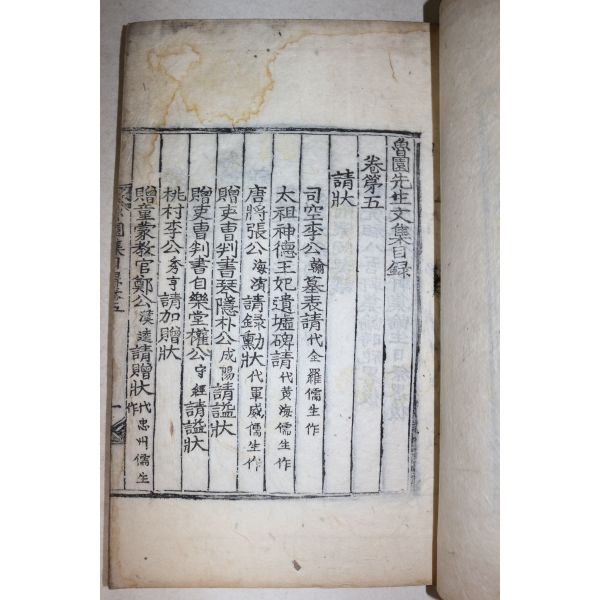 魯園先生文集目録
卷第五
請狀
司空李公翰墓表請代全羅儒生作
太祖神德王妃遺墟碑請代黃海儒生作
唐將張公海濱請録勳狀代軍威儒生作
贈吏曹判書琴隱朴公成陽請謚狀
贈吏曹判書自樂堂權公守經請謚狀
桃村李公秀亨請加贈狀
贈童蒙教官鄭公漢逵請贈狀代忠州儒生作
園集目録卷五 一